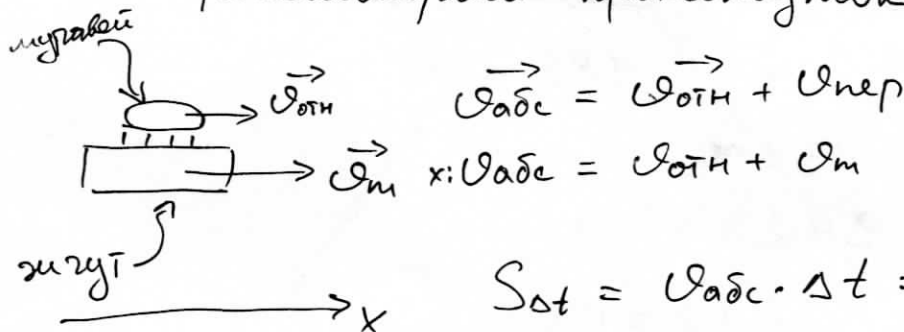 муравей
v⃗отн
v⃗абс = v⃗отн + vпер
v⃗m
x: vабс = vотн + vm
жгут
x
S∆t = vабс · ∆t =